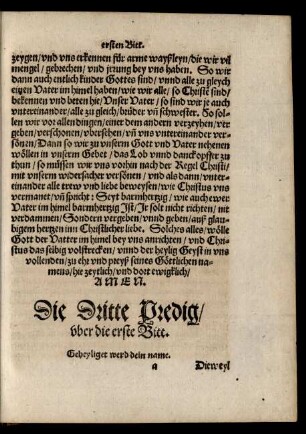 ersten Bitt.
zeygen/vnd vns erkennen für arme wayßleyn/die wir vil
mengel/gebrechen/vnd jrrung bey vns haben. So wir
dann auch entlich kinder Gottes sind/vnnd alle zu gleych
eigen Vater im himel haben/wie wir alle/so Christē sind/
bekennen vnd beten hie/Vnser Vater/so sind wir je auch
vntereinander/alle zu gleich/brüder vñ schwester. So sol-
len wir vor allen dingen/einer dem andern verzeyhen/ver
geben/verschonen/vbersehen/vñ vns vntereinander ver-
sönen/Dann so wir zu vnserm Gott vnd Vater nehenen
wöllen in vnserm Gebet/das Lob vnnd danckopffer zu
thun/so müssen wir vns vorhin nach der Regel Christi/
mit vnserm widersacher versönen/vnd als dann/vnter-
einander alle trew vnd liebe beweysen/wie Christus vns
vermanet/vñ spricht: Seyt barmhertzig/wie auch ewer
Vater im himel barmhertzig Ist/Ir solt nicht richten/nit
verdammen/Sondern vergeben/vnnd geben/auß glau-
bigem hertzen inn Christlicher liebe. Solches alles/wölle
Gott der Vatter im himel bey vns anrichten/vnd Chri-
stus das selbig volstrecken/vnnd der heylig Geyst in vns
vollenden/zu ehr vnd preyß seines Götlichen na-
mens/hie zeytlich/vnd dort ewigklich/
A M E N.
Die Dritte Predig/
vber die erste Bitt.
Geheyliget werd dein name.
a Dieweyl